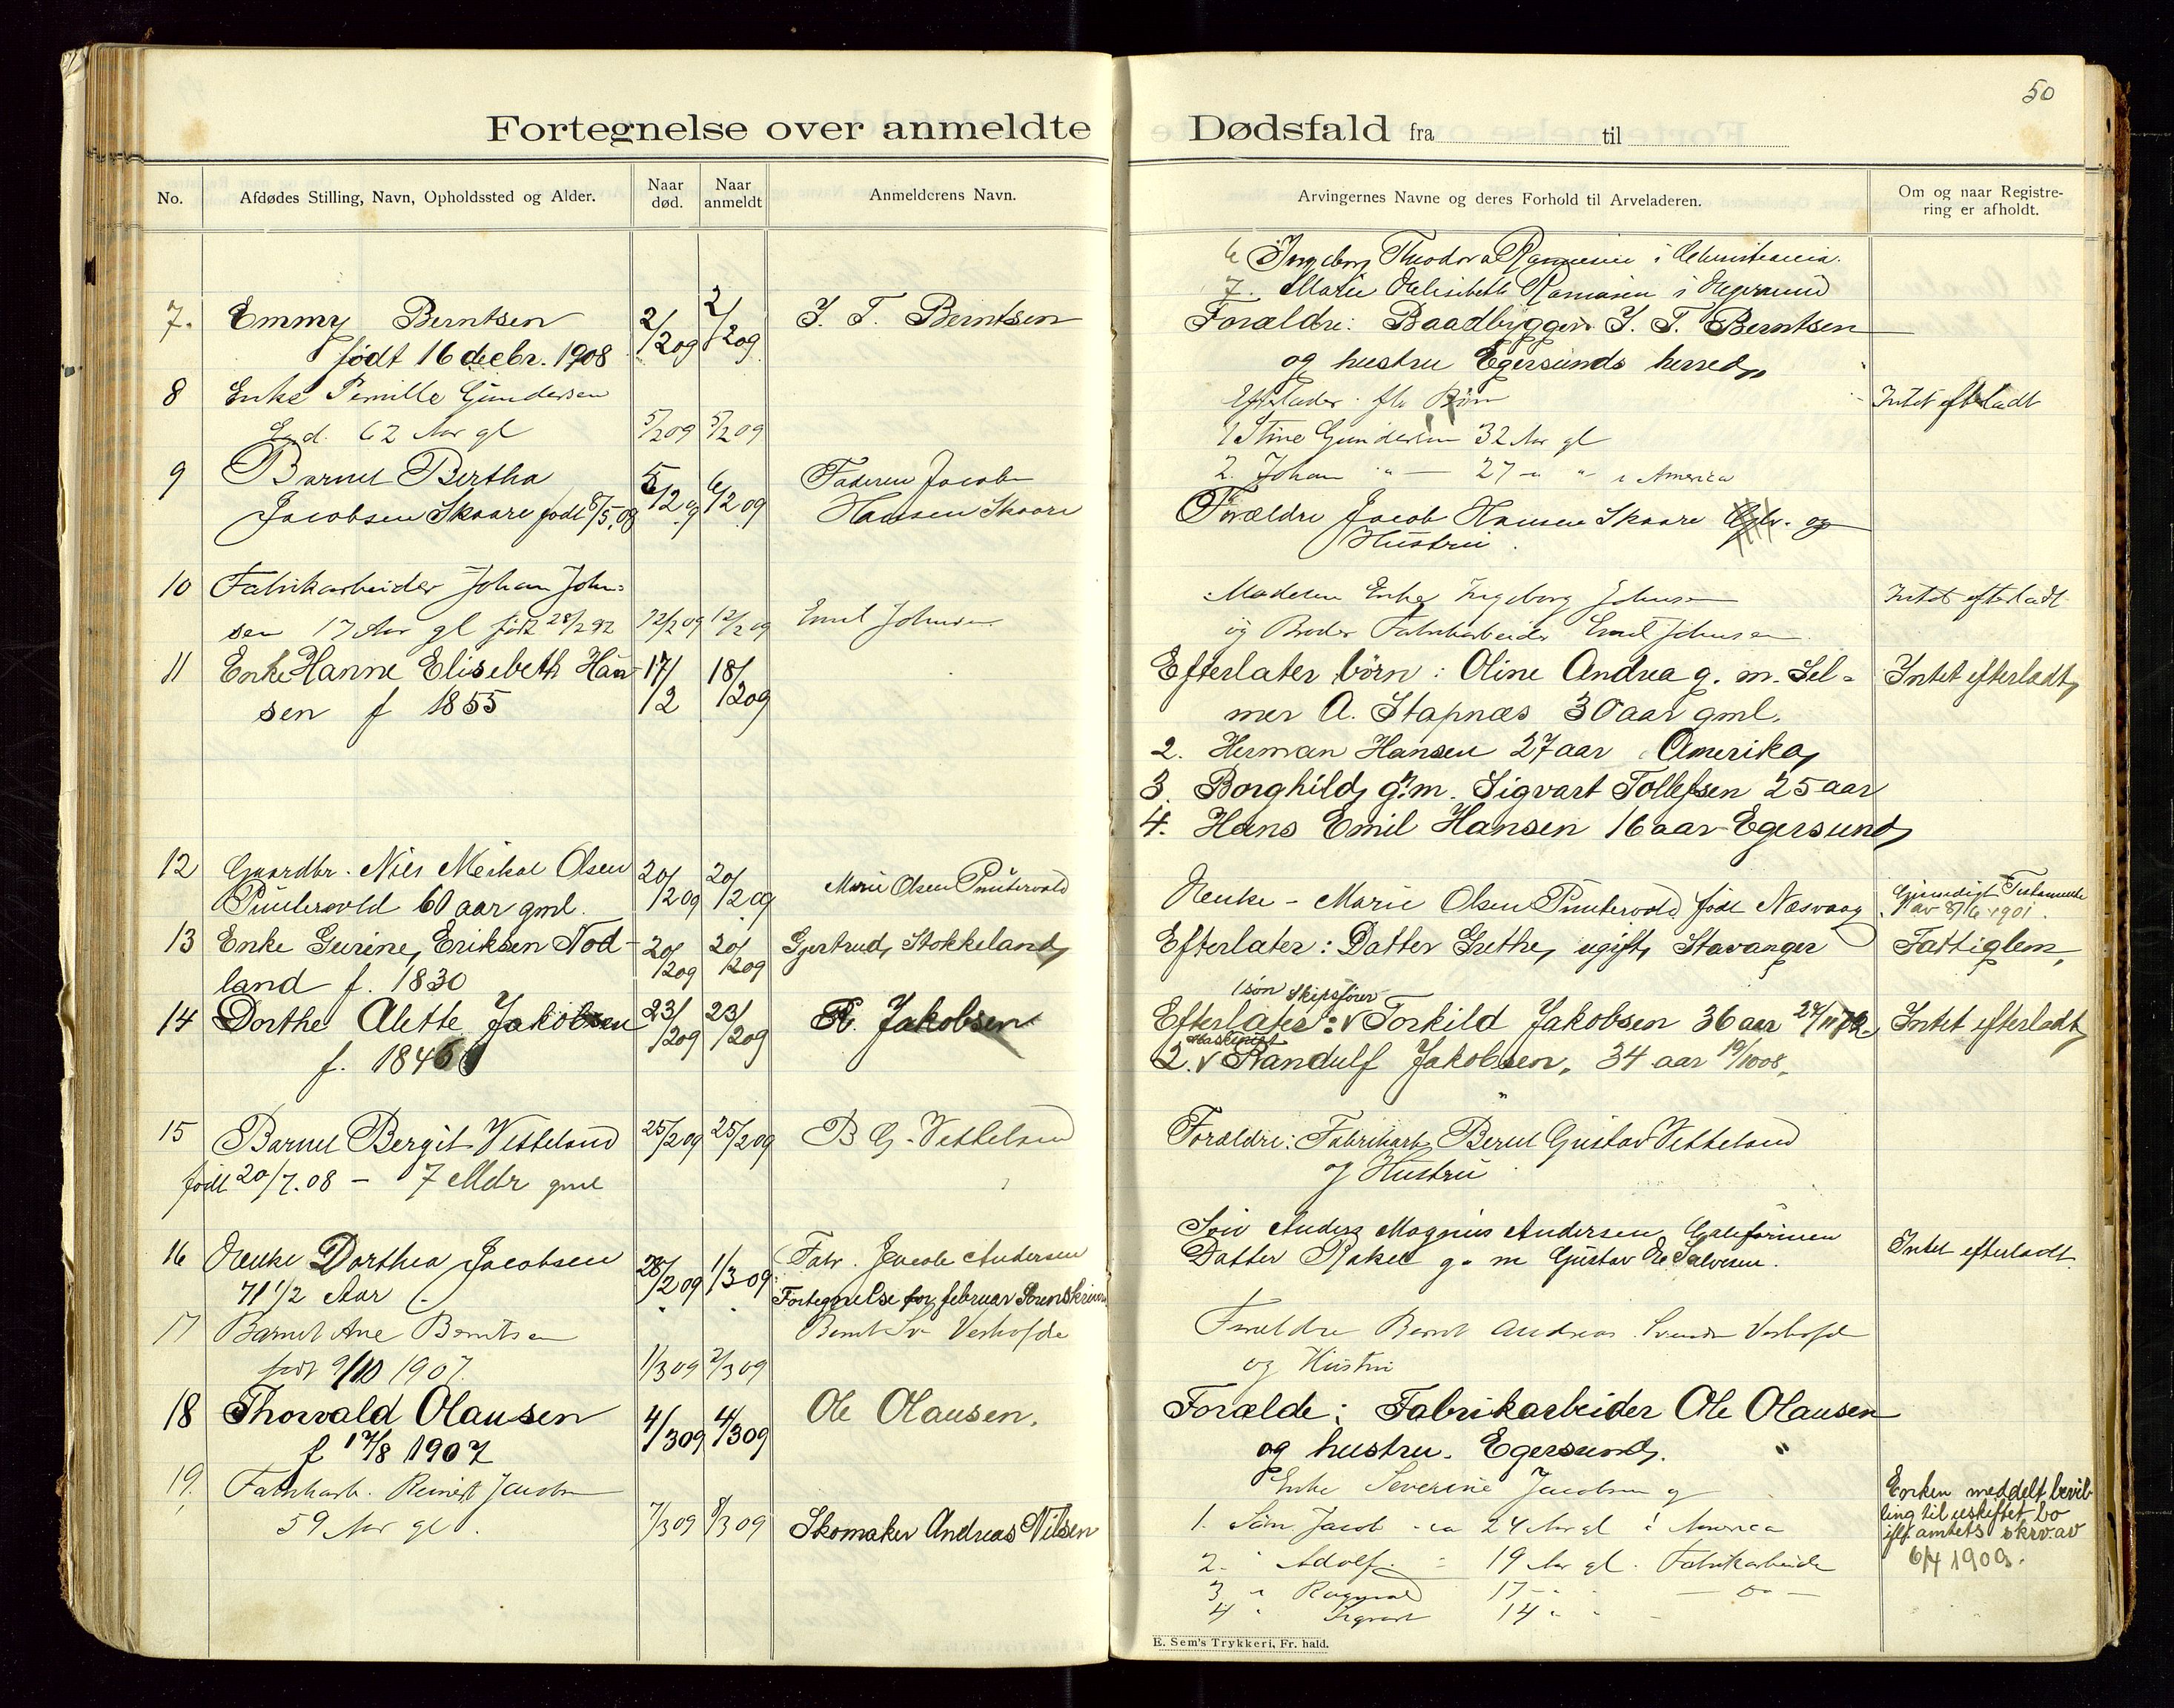 50
Fortegnelse over anmeldte Dødsfald fra til
No. Afdødes Stilling, Navn, Opholdssted og Alder. Naar død. Naar anmeldt Anmelderens Navn. Arvingernes Navne og deres Forhold til Arveladeren. Om og naar Registrering er afholdt.
6 Ingeborg Theodora Rasmussen i Christiania.
7. Marie Elisabeth Rasmussen i Egersund
7. Emmy Berntsen 2/2 09 2/2 09 I. T. Berntsen Forældre: Baadbygger I. T. Berntsen
født 16 decbr. 1908 og hustru Egersunds herred,
8 Enke Pernille Gundersen Efterlader flr Børn Intet efterladt
Egd. 62 Aar gl 5/2 09 5/2 09 1 Stine Gundersen 32 Aar gl
2. Johan " — 27 " " i America
9 Barnet Bertha 5/2 09 6/2 09 Faderen Jacob
Jacobsen Skaare født 8/5.08 Hansen Skaare Forældre Jacob Hansen Skaare og
Hustru.
10 Fabrikarbeider Johan John= Moderen Enke Ingeborg Johnsen Intet efterladt
sen 17 Aar gl født 28/2 92 12/2 09 12/2 09 Emil Johnsen og Broder Fabrikarbeider Emil Johnsen.
11 Enke Hanne Elisebeth Han- 17/2 18/2 09 Efterlater børn: Oline Andrea g. m. Sel- Intet efterladt,
sen f 1855 mer A. Stapnæs 30 aar gml.
2. Herman Hansen 27 aar Amerika,
3. Borghild, g.m. Sigvart Tollefsen 25 aar
4. Hans Emil Hansen 16 aar Egersund,
12 Gaardbr. Nils Meikal Olsen 20/2 09 20/2 09 Marie Olsen Puntervold Henke - Marie Olsen Puntervold født Næsvaag Gjensidigt Testamente
Puntervold 60 aar gml. av 8/6 1901.
13 Enke Gurine, Eriksen Nod- 20/2 09 20/2 09 Gjertrud, Stokkeland, Efterlater: Datter Grethe, ugift, Stavanger Fattiglem,
land f. 1830
1 søn Skipsfører
14 Dorthe Alette Jakobsen 23/2 09 23/2 09 R. Jakobsen Efterlater: Torkild Jakobsen 36 aar Intet efterladt,
Maskinist
f. 1846 2. Randulf Jakobsen, 34 aar 19/10 08,
15 Barnet Bergit Vetteland 25/2 09 25/2 09 B G. Vetteland Forældre: Fabrikarb, Bernt Gustav Vetteland
født 20/7.08 - 7 Mdr gml og Hustru
Søn Anders Magnus Andersen Californien
16 Henke Dorthea Jacobsen 28/2 09 1/3 09 Fabr. Jacob Andersen Datter Rakel g. m Gustav E Salvesen. Intet efterladt.
71 1/2 Aar. Fortegnelse for februar Sorenskriveren
17 Barnet Ane Berntsen Bernt Sv Verhofde Forældre Bernt Andreas Svendsen Verhofde
født 9/10 1907 1/3 09 2/3 09 og Hustru
18 Thorvald Olausen 4/3 09 4/3 09 Ole Olausen. Forælde: Fabrikarbeider Ole Olausen
f 17/8 1907 og hustru. Egersund,
19. Fabrikarb. Reinert Jacobsen Enke Severine Jacobsen og Enken meddelt bevil-
59 Aar gl. 7/3 09 8/3 09 Skomaker Andreas Nilsen 1. Søn Jacob ca 24 Aar gl i America ling til uskiftet bo
iflg. amtets skrv. av
2. " Adolf " 19 Aar gl. Fabrikarbeider 6/4 1909.
3 " Ragnvald 17 " — Do —
4 " Sigvart 14 " "
E. Sem's Trykkeri, Fr. hald.